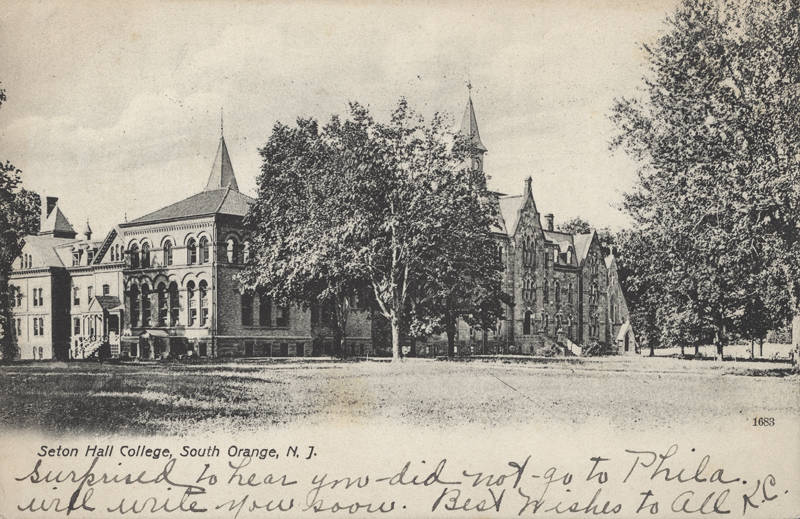 1683
Seton Hall College, South Orange, N. J.
Surprised to hear you did not go to Phila.
will write you soon. Best Wishes to All K.C.